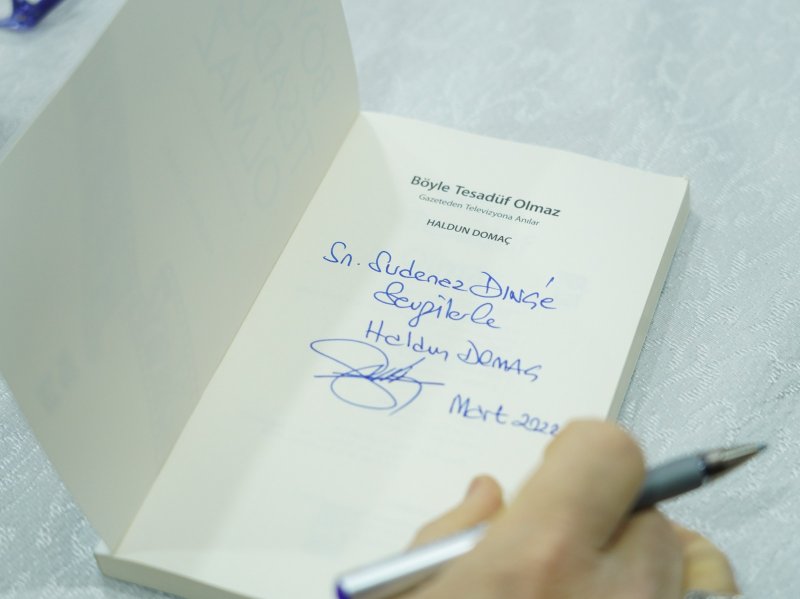 Böyle Tesadüf Olmaz
Gazeteden Televizyona Anılar
HALDUN DOMAÇ
Sn. Sudenaz DİNÇ'e
Sevgilerle
Haldun DOMAÇ
Mart 2022